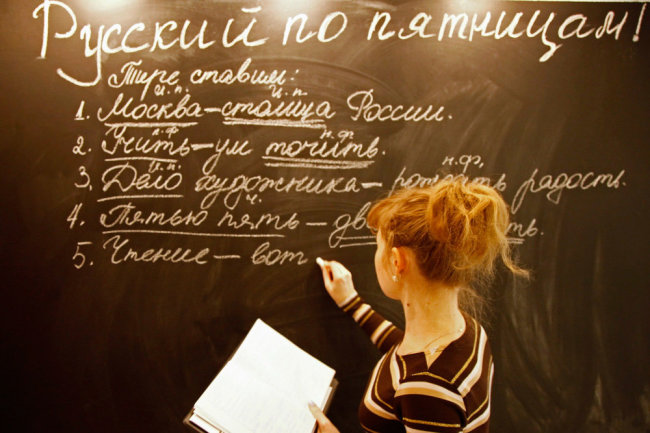 Русский по пятницам!
Тире ставим:
и.п. и.п.
1. Москва – столица России.
н.ф. н.ф.
2. Учить – ум точить.
и.п. н.ф.
3. Дело художника – рождать радость.
4. Пятью пять –
ч.
5. Чтение – вот